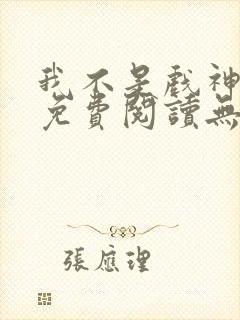 我不是戲神
免費閱讀無
張應理